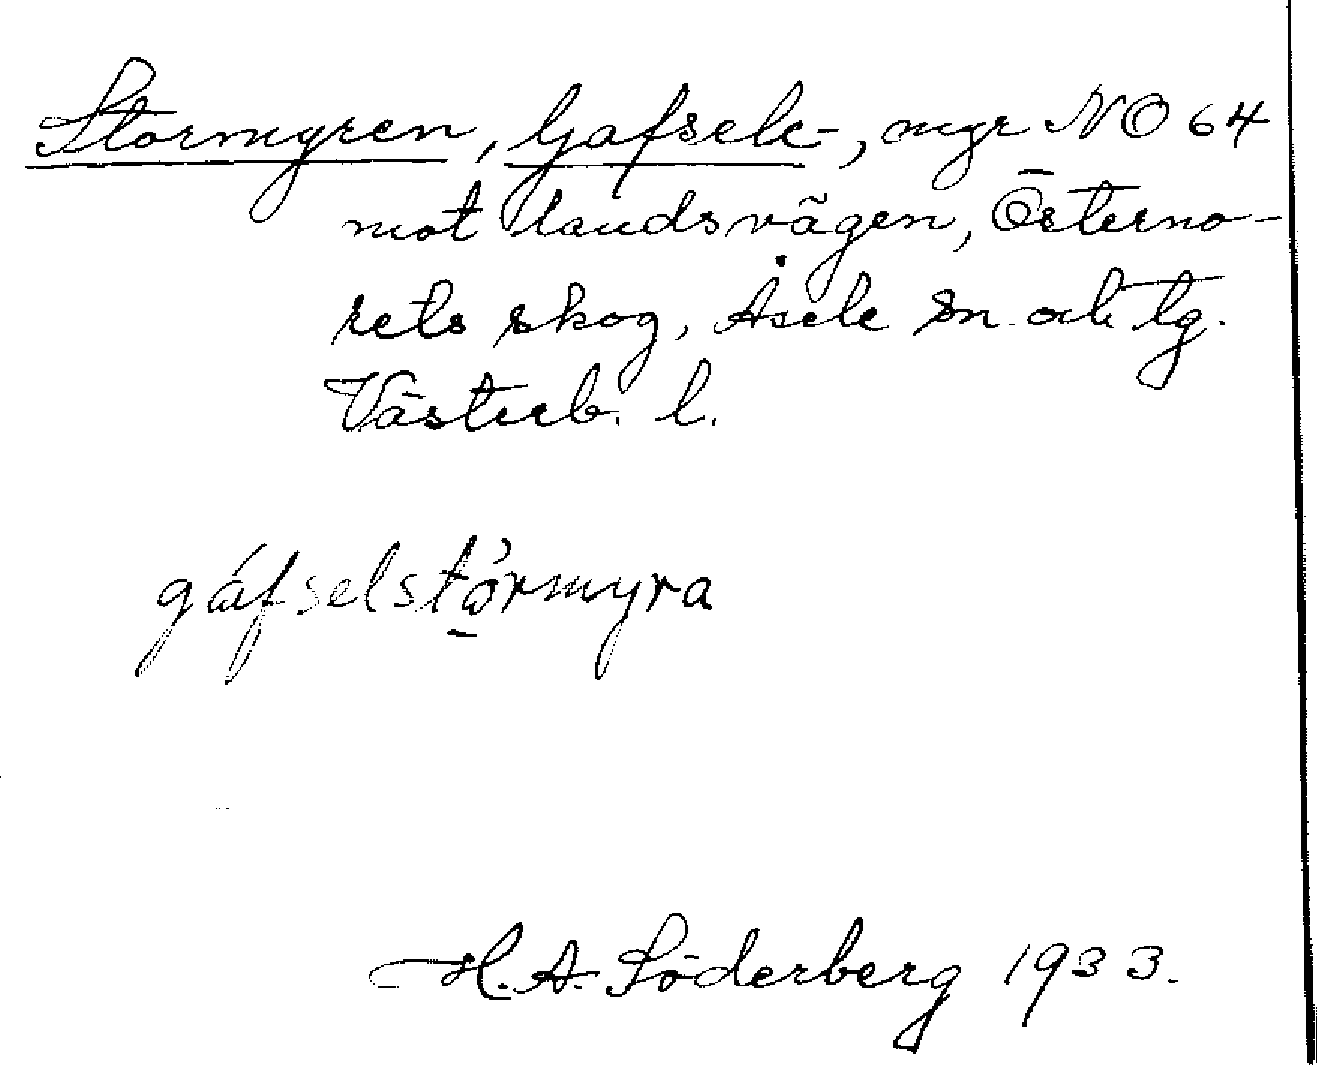 Stormyren, Gafsele-, myr NO 64
mot landsvägen, Österno-
rets skog, Åsele sn. och tg.
Västerb. l.
gáfselstó̱rmyra
H. A. Söderberg 1933.